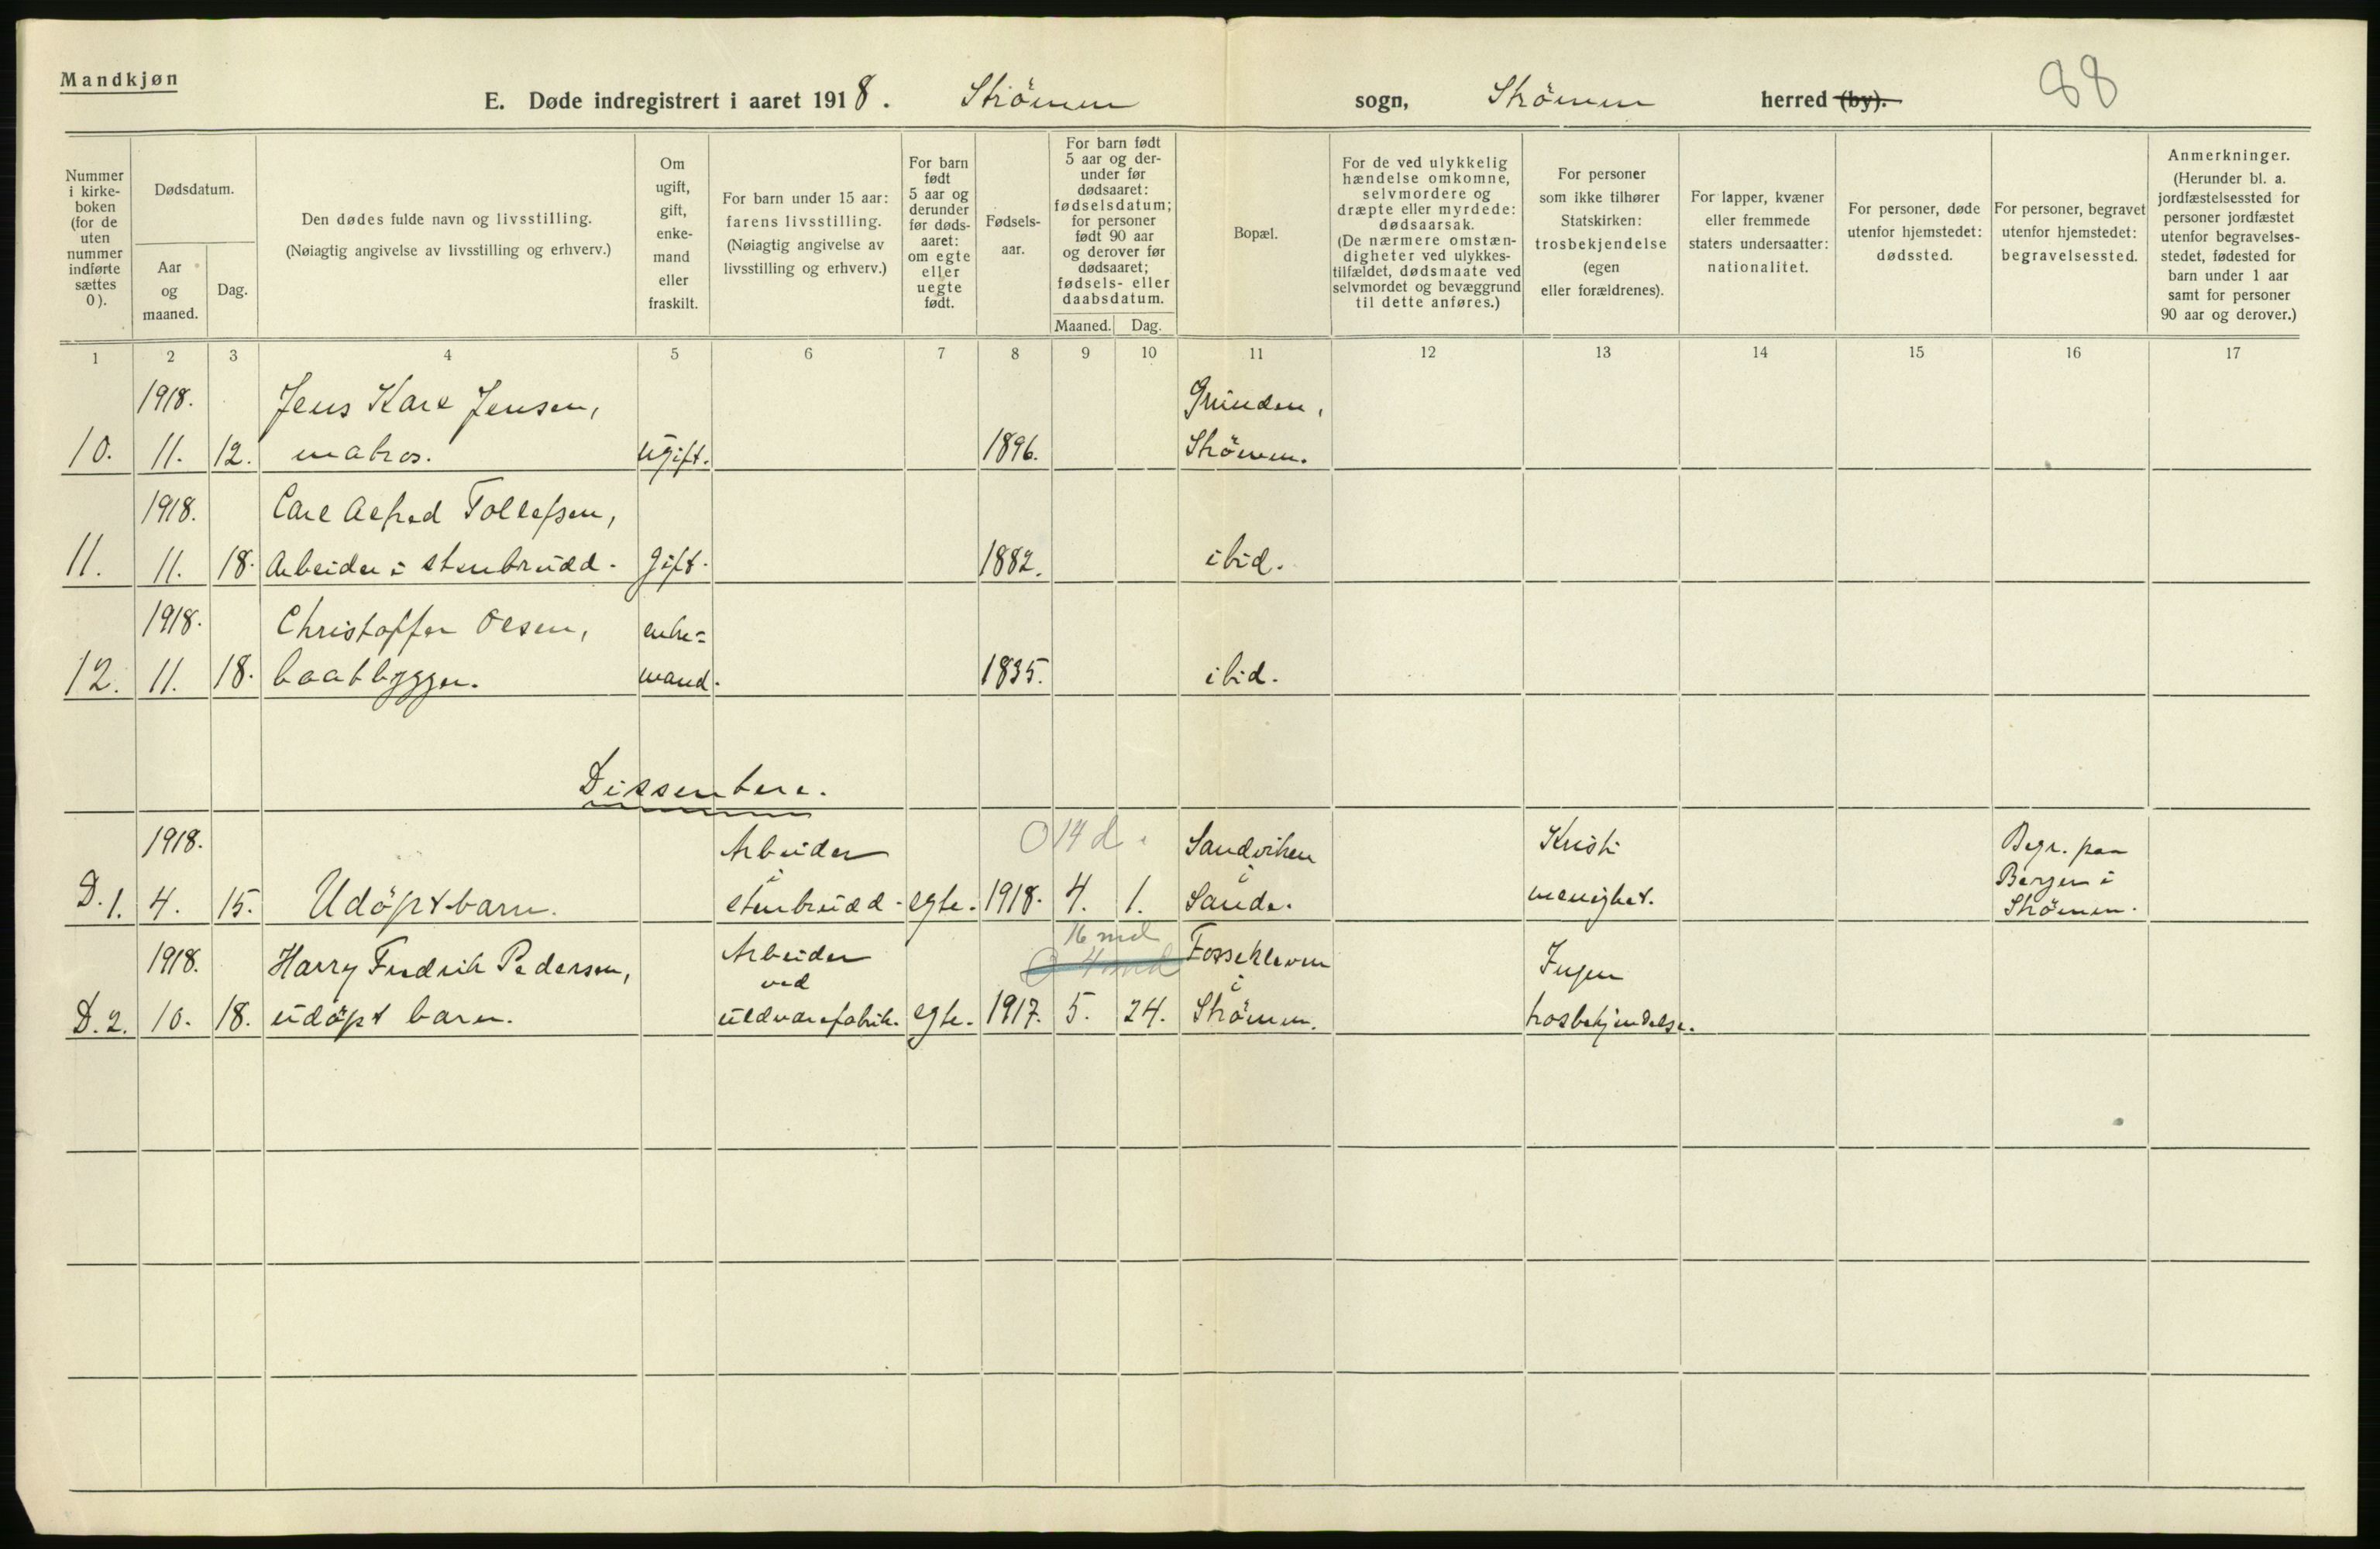 Mandkjøn
88
E. Døde indregistrert i aaret 1918. Strömm sogn, Strömm herred (by).
Nummer
i kirke-
boken
(for de
uten
nummer
indførte
sættes
0).
Dødsdatum.
Aar
og
maaned.
Dag.
Den dødes fulde navn og livsstilling.
(Nøiagtig angivelse av livsstilling og erhverv.)
Om
ugift,
gift,
enke-
mand
eller
fraskilt.
For barn under 15 aar:
farens livsstilling.
(Nøiagtig angivelse av
livsstilling og erhverv.)
For barn
født
5 aar og
derunder
før døds-
aaret:
om egte
eller
uegte
født.
Fødsels-
aar.
For barn født
5 aar og der-
under før
dødsaaret:
fødselsdatum;
for personer
født 90 aar
og derover før
dødsaaret;
fødsels- eller
daabsdatum.
Maaned. Dag.
Bopæl.
For de ved ulykkelig
hændelse omkomne,
selvmordere og
dræpte eller myrdede:
dødsaarsak.
(De nærmere omstæn-
digheter ved ulykkes-
tilfældet, dødsmaate ved
selvmordet og bevæggrund
til dette anføres.)
For personer
som ikke tilhører
Statskirken:
trosbekjendelse
(egen
eller forældrenes).
For lapper, kvæner
eller fremmede
staters undersaatter:
nationalitet.
For personer, døde
utenfor hjemstedet:
dødssted.
For personer, begravet
utenfor hjemstedet:
begravelsessted.
Anmerkninger.
(Herunder bl. a.
jordfæstelsessted for
personer jordfæstet
utenfor begravelses-
stedet, fødested for
barn under 1 aar
samt for personer
90 aar og derover.)
1 2 3 4 5 6 7 8 9 10 11 12 13 14 15 16 17
1918. Jens Karl Jensen, Grunden,
10. 11. 12. matros. ugift. 1896. Strömm.
1918. Carl Alfred Tollefsen,
11. 11. 18. Arbeider i stenbrudd. gift. 1882. ibid.
1918. Christoffer Olsen, enke=
12. 11. 18. baatbygger. mand. 1835. ibid.
Dissentere.
1918. Arbeider 0 14 d. Sandviken Kristi Begr. paa
i i Bergen i
D.1. 4. 15. Udöpt barn. stenbrudd. egte. 1918. 4. 1. Sande. menighet. Strömm.
16 md
1918. Harry Fredrik Pedersen, Arbeider 0 4 md Fossekleven Ingen
ved i
D.2. 10. 18. udöpt barn. uldvarefabrik. egte. 1917. 5. 24. Strömm. trosbekjendelse.